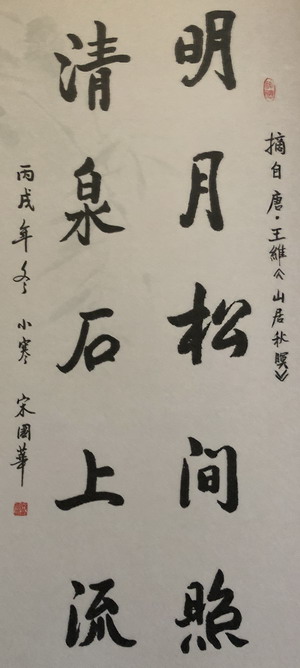 摘自唐·王維《山居秋暝》
明月松间照
清泉石上流
丙戌年冬小寒 宋國華